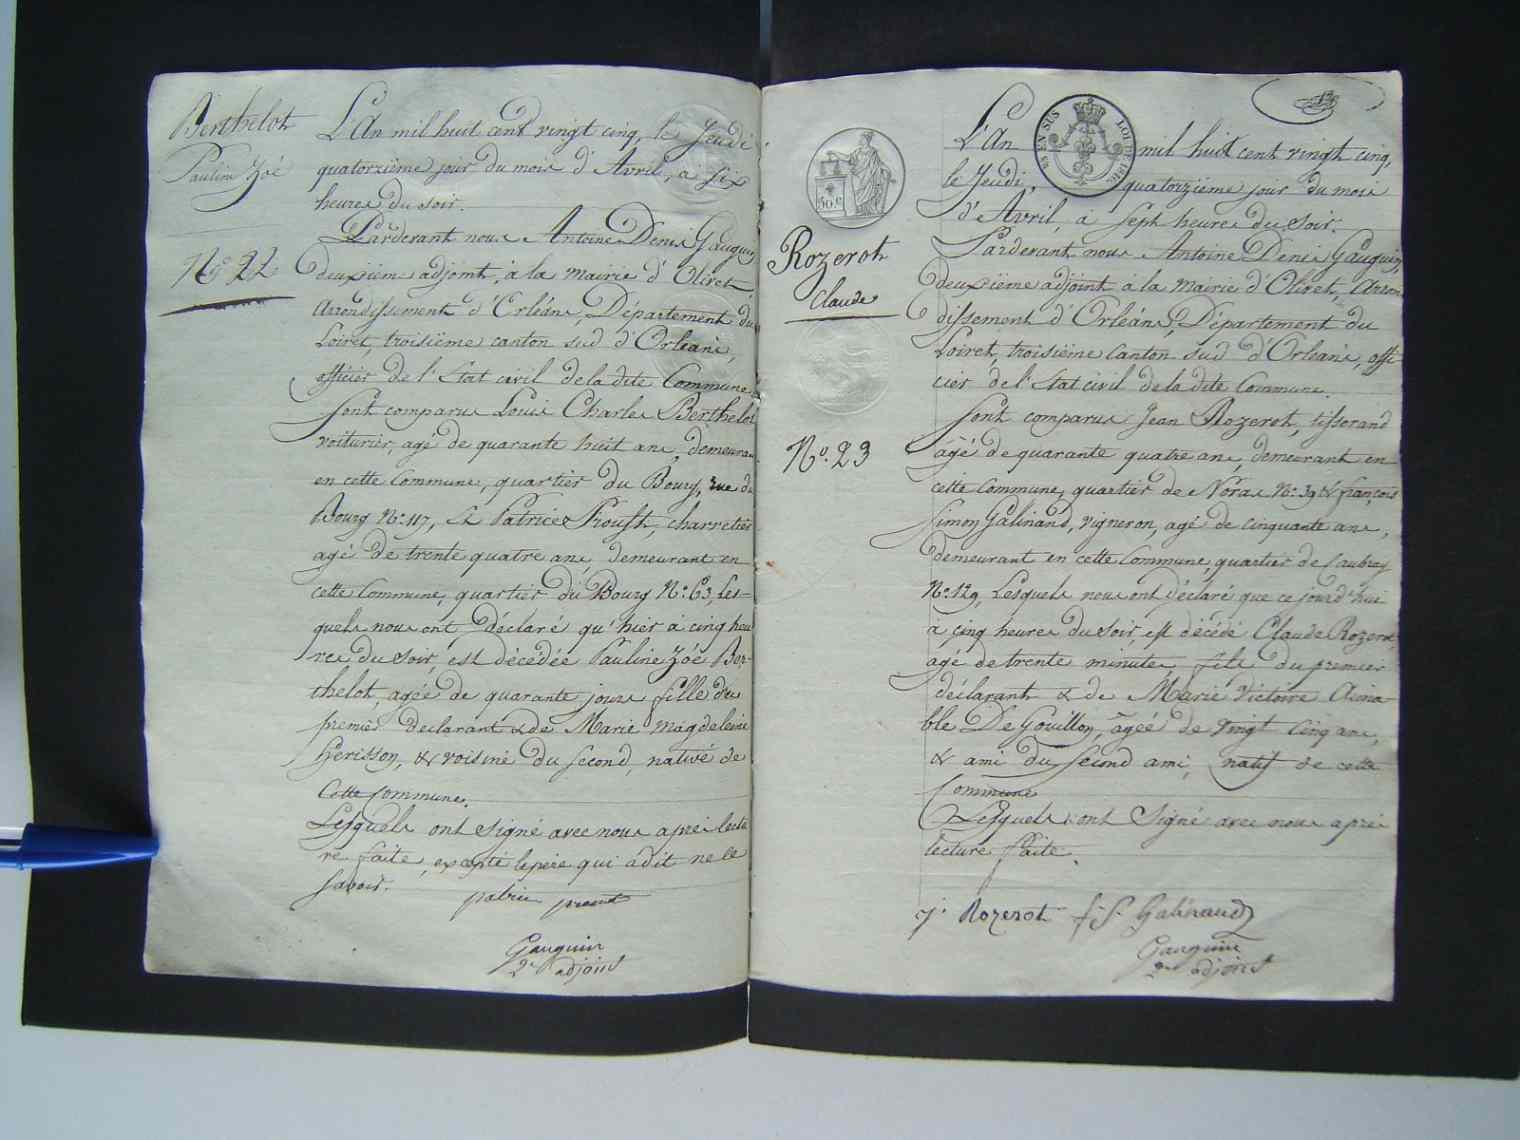 Berthelot
Pauline Zoé
N.º 22
L'An mil huit cent vingt cinq, le Jeudi
quatorzième jour du mois d'Avril, à six
heures du soir.
Pardevant nous Antoine Denis Gauguin
deuxième adjoint, à la mairie d'Olivet
Arrondissement d'Orléans, Département du
Loiret, troisième canton sud d'Orléans,
officier de l'Etat civil de la dite Commune
Sont comparus Louis Charles Berthelot
voiturier, agé de quarante huit ans, demeurant
en cette Commune, quartier du Bourg, rue du
Bourg N.º 117, & Patrice Proust, charretier
agé de trente quatre ans, demeurant en
cette Commune, quartier du Bourg N.º 63, Les-
quels nous ont déclaré qu'hier à cinq heu
res du soir, est décédée Pauline Zoé Ber-
thelot, agée de quarante jours fille du
premier declarant & de Marie Magdeleine
Herisson, & voisine du second, native de
Cette Commune.
Lesquels ont signé avec nous après lectu
re faite, excepté le père qui a dit ne le
savoir.
patrice proust
Gauguin
2e adjoint
50.c
L'An mil huit cent vingt cinq,
EN SUS
LOI DE 1816
le Jeudi, quatorzième jour du mois
d'Avril, à sept heures du soir.
Rozerot
Claude
N.º 23
Pardevant nous Antoine Denis Gauguin,
deuxième adjoint à la mairie d'Olivet, Arron
dissement d'Orléans, Département du
Loiret, troisième Canton sud d'Orléans, offi
cier de l'Etat civil de la dite Commune.
Sont comparus Jean Rozerot, tisserand
âgé de quarante quatre ans, demeurant en
cette Commune, quartier de Noras N.º 39 & françois
Simon Galinand, vigneron, agé de cinquante ans,
demeurant en cette Commune, quartier de Caubray
N.º 129, Lesquels nous ont Déclaré que ce jourd'hui
à cinq heures du soir, est décédé Claude Rozerot,
agé de trente minutes fils du premier
déclarant & de Marie Victoire Aima
ble De Gouillon, âgée de vingt cinq ans,
& ami du second ami, natif de cette
Commune
Lesquels ont Signé avec nous après
lecture faite.
J. Rozerot f. S. Galinand
Gauguin
2e adjoint